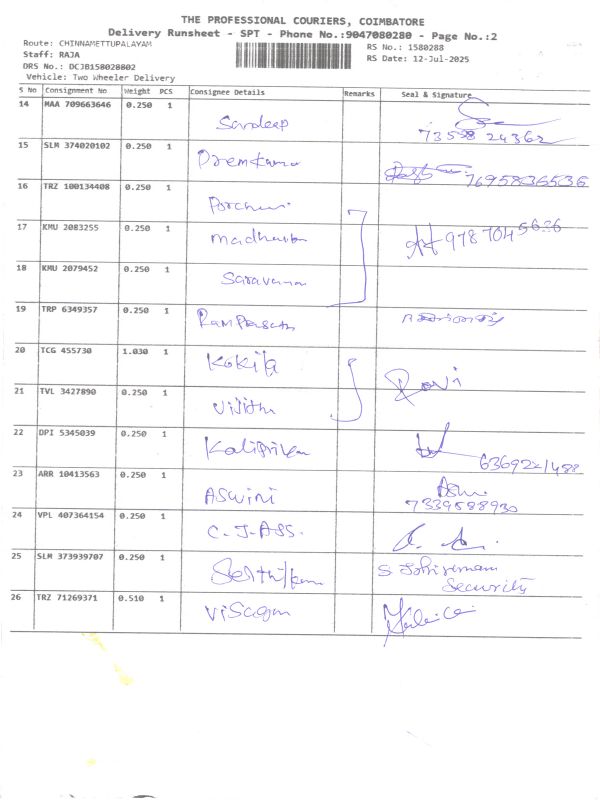 THE PROFESSIONAL COURIERS, COIMBATORE
Delivery Runsheet - SPT - Phone No.:9047080280 - Page No.:2
Route: CHINNAMETTUPALAYAM RS No.: 1580288
Staff: RAJA RS Date: 12-Jul-2025
DRS No.: DCJB158028802
Vehicle: Two Wheeler Delivery
S No Consignment No Weight PCS Consignee Details Remarks Seal & Signature
14 MAA 709663646 0.250 1
Sandeep 73598 24362
15 SLM 374020102 0.250 1
Premkumar 7695836536
16 TRZ 100134408 0.250 1
17 KMU 2083255 0.250 1
18 KMU 2079452 0.250 1
Saravana
19 TRP 6349357 0.250 1
20 TCG 455730 1.030 1
Kokila Ravi
21 TVL 3427890 0.250 1
Vijithu
22 DPI 5345039 0.250 1
23 ARR 10413563 0.250 1
ASWINI Aswi
7339588930
24 VPL 407364154 0.250 1
C. J. ASS.
25 SLM 373939707 0.250 1
Security
26 TRZ 71269371 0.510 1
Visagan